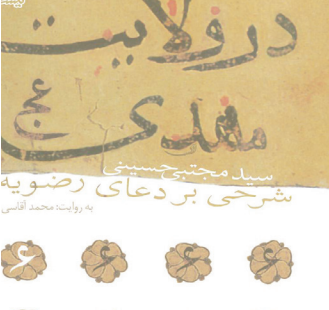 در ولایت
مهدی عج
سید مجتبی حسینی
شرحی بر دعای رضویه
به روایت: محمد آقاسی
۶ ۶ ۶ ۶